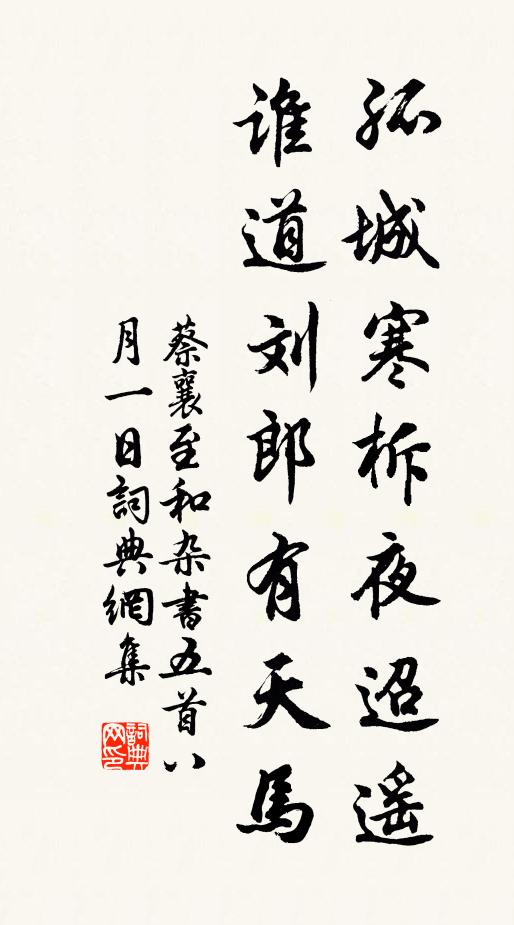 孤城寒柝夜迢遥
谁道刘郎有天馬
蔡襄至和杂書五首八
月一日詞典網集
詞典网印